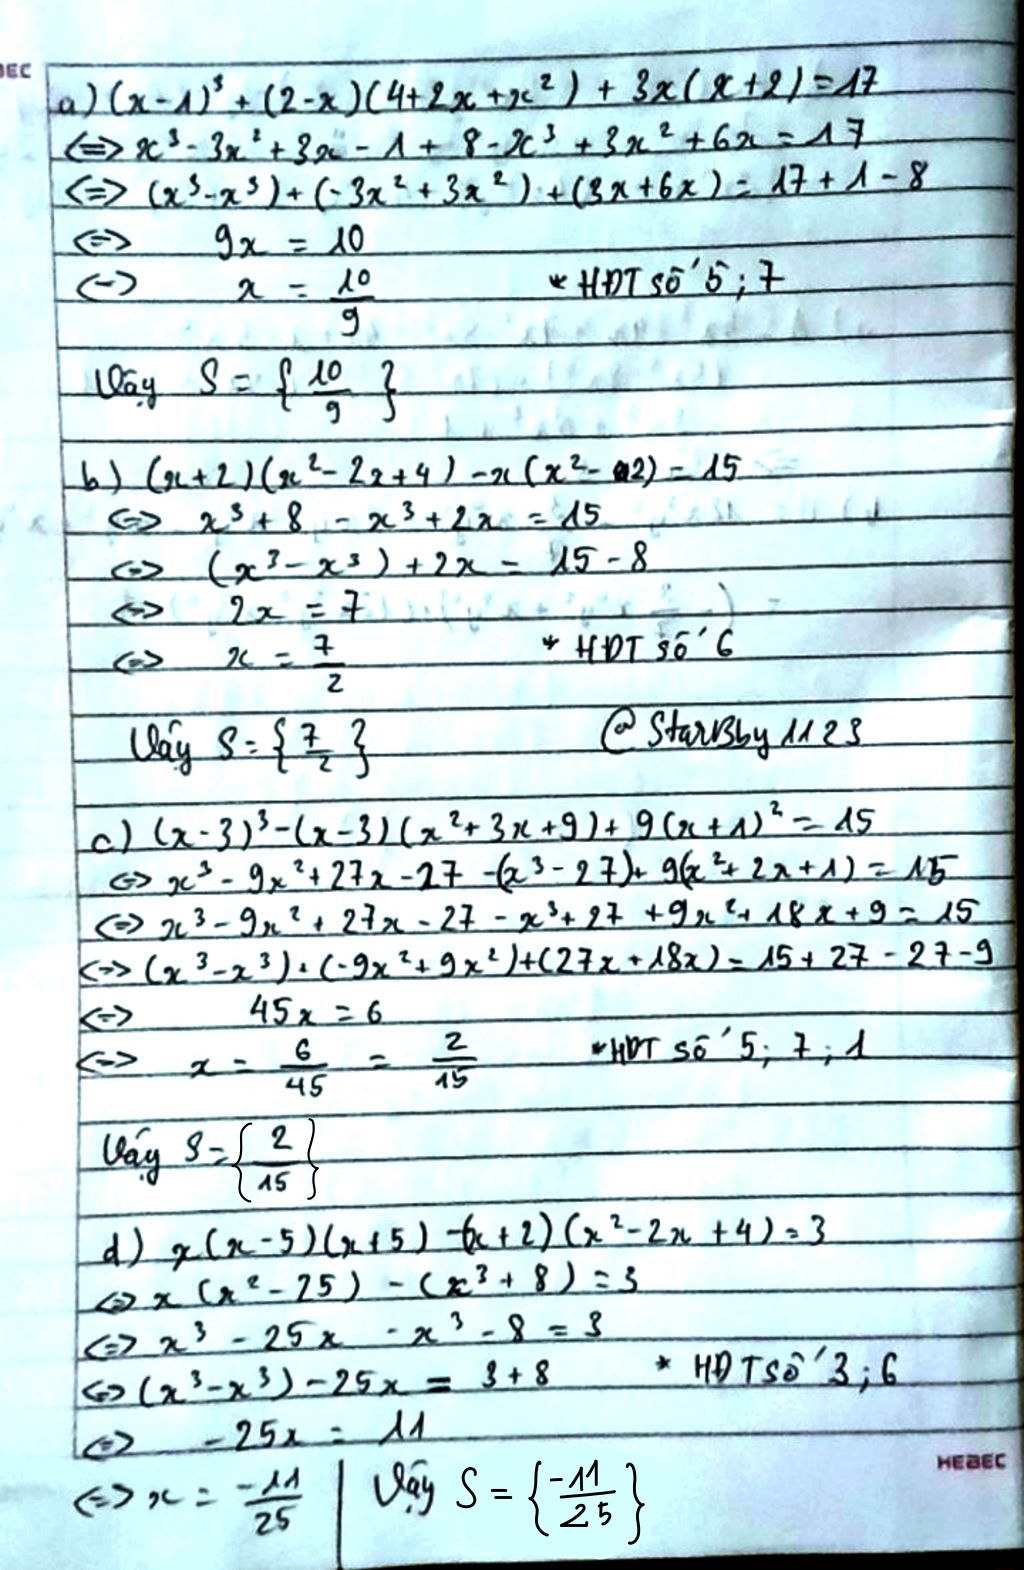 BEC
a) (x-1)³ + (2-x)(4+2x+x²) + 3x(x+2) = 17
<=> x³ - 3x² + 3x - 1 + 8 - x³ + 3x² + 6x = 17
<=> (x³-x³) + (-3x² + 3x²) + (3x+6x) = 17 + 1 - 8
<=> 9x = 10
<=> x = 10/9 * HĐT số 5; 7
Vậy S = { 10/9 }
b) (x+2)(x²-2x+4) - x(x²-2) = 15
<=> x³ + 8 - x³ + 2x = 15
<=> (x³-x³) + 2x = 15 - 8
<=> 2x = 7
<=> x = 7/2 * HĐT số 6
Vậy S = { 7/2 } @StarBby1123
c) (x-3)³ - (x-3)(x²+3x+9) + 9(x+1)² = 15
<=> x³ - 9x² + 27x - 27 - (x³-27) + 9(x²+2x+1) = 15
<=> x³ - 9x² + 27x - 27 - x³ + 27 + 9x² + 18x + 9 = 15
<=> (x³-x³) + (-9x²+9x²) + (27x+18x) = 15 + 27 - 27 - 9
<=> 45x = 6
<=> x = 6/45 = 2/15 *HĐT số 5; 7; 1
Vậy S = { 2/15 }
d) x(x-5)(x+5) - (x+2)(x²-2x+4) = 3
<=> x(x²-25) - (x³+8) = 3
<=> x³ - 25x - x³ - 8 = 3
<=> (x³-x³) - 25x = 3+8 * HĐT số 3; 6
<=> -25x = 11
HEBEC
<=> x = -11/25 | Vậy S = { -11/25 }